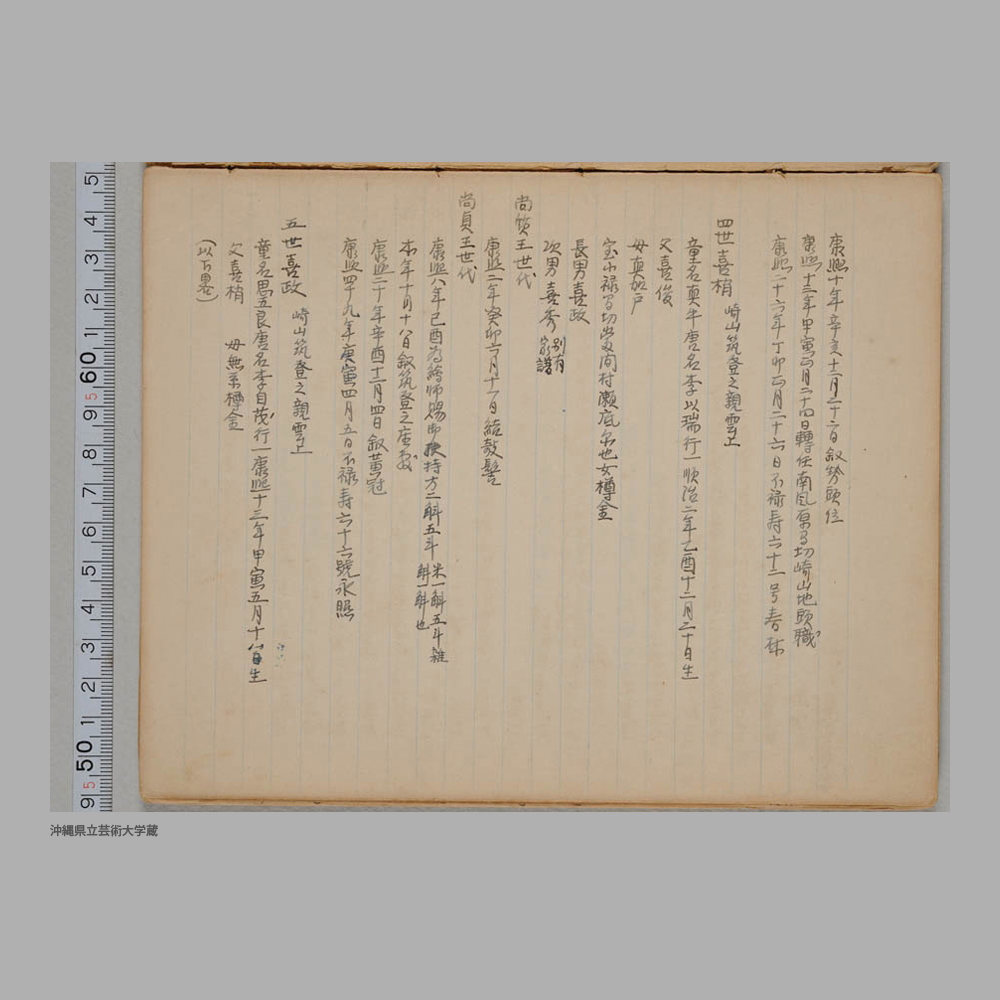 康熙十年辛亥十二月二十六日叙勢頭位
康熙十三年甲寅正月二十四日轉任南風原間切崎山地頭職
康熙二十六年丁卯正月二十六日不禄寿六十二号春林
四世喜梢 崎山筑登之親雲上
童名真牛唐名李以瑞行一順治二年乙酉十二月二十日生
父喜俊
母真加戸
室小禄間切當間村瀬底 女樽金
長男喜政
次男喜秀 別有家譜
尚質王世代
康熙二年癸卯六月十一日結敧髻
尚貞王世代
康熙八年己酉為繪師賜御扶持方二斛五斗 米一斛五斗雑斛一斛也
本年十月十八日叙筑登之座敷
康熙二十年辛酉十二月四日叙黄冠
康熙四十九年庚寅四月五日不禄寿六十六號永照
五世喜政 崎山筑登之親雲上
童名思五良唐名李自茂行一康熙十三年甲寅五月十八日生
父喜梢 母無系樽金
(以下畧)
5 4 3 2 1 60 9 8 7 6 5 4 3 2 1 50 9
5 5
沖縄県立芸術大学蔵